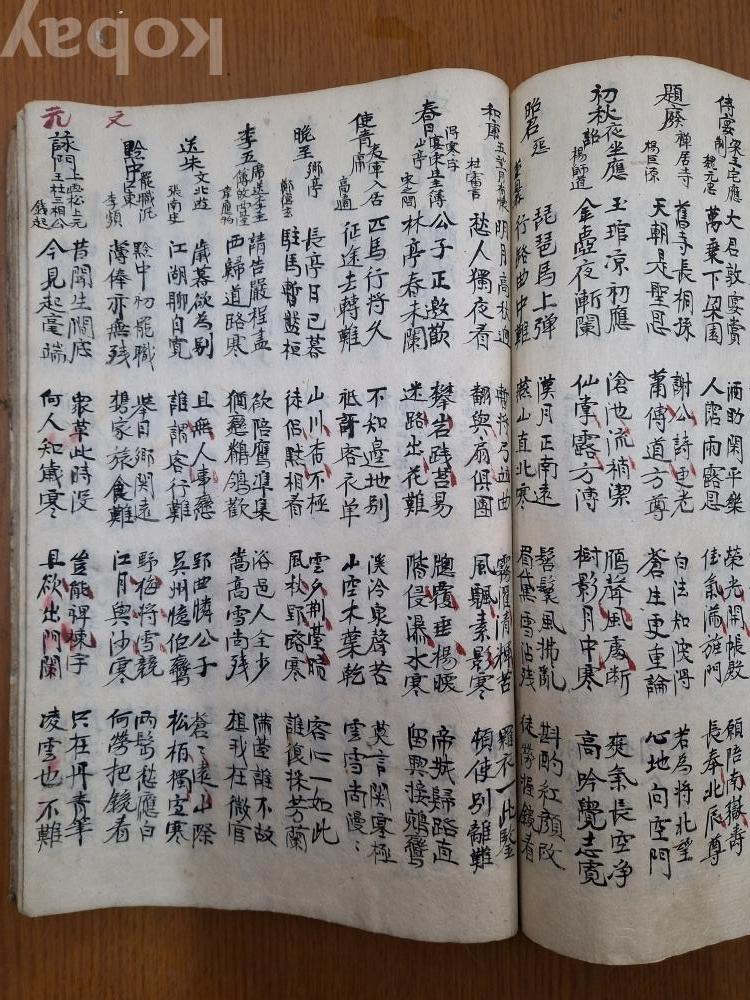 侍宴梁王宅應制
魏元忠
大君敦宴賞
萬乘下梁園
酒助閑平樂
人霑雨露恩
榮光開帳殿
佳氣滿旌門
願陪南嶽壽
長奉北辰尊
題廢禪居寺
楊巨源
舊寺長桐孫
天朝是聖恩
謝公詩更老
蕭傅道方尊
白法知深得
蒼生更重論
若為將北望
心地向空門
初秋夜坐應詔
楊師道
玉琯凉初應
金壺夜漸闌
滄池流稍潔
仙掌露方漙
鴈聲風處斷
樹影月中寒
爽氣長空净
高吟覺志寬
昭君怨
琵琶馬上彈
行路曲中難
漢月正南遠
燕山直北寒
髻鬟風拂亂
眉黛雪沾残
斟酌紅顔改
徒勞握鏡看
和康五望月有懷
杜審言
明月高秋迥
愁人獨夜看
暫將弓並曲
翻與扇俱團
霧濯清輝苦
風飄素影寒
羅衣一此鑒
頓使別離難
春日宴宋主薄山亭
得寒字
宋之問
公子正邀歡
林亭春未闌
攀岩践苔易
迷路出花難
牕覆垂楊暖
階侵瀑水寒
帝城歸路直
留興接鵷鸞
使青夷軍入居庸
高適
匹馬行將久
征途去轉難
不知邊地別
祗訝客衣单
溪冷泉聲苦
山空木葉乾
莫言関塞極
雲雪尚漫ミ
晚至鄉亭
長亭日已暮
駐馬暫盤桓
山川杳不極
徒侶黙相看
雲夕荆臺暗
風秋郢路寒
客心一如此
誰復採芳蘭
李五席送李主
韋應物
請告嚴程盡
西歸道路寒
欲陪鷹隼集
猶戀鶺鴒歡
洛邑人全少
嵩高雪尚残
滿臺誰不故
報我在微官
送朱文北遊
張南史
歲暮欲為别
江湖聊自寬
且無人事戀
誰謂客行難
郢曲憐公子
吳州憶伯鸞
蒼ミ遠山際
松栢獨宜寒
黔中罷職泛江東
李頻
黔中初罷職
薄俸亦無残
舉目鄉関遠
携家旅食難
野梅將雪競
江月與沙寒
兩鬢愁應白
何勞把鏡看
詠門上西松上元王杜三相公
錢起
昔聞生澗底
今見起毫端
衆草此時沒
何人知歲寒
豈能裨棟宇
且欲出門闌
只在丹青筆
凌雲也不難
元 文
kobay